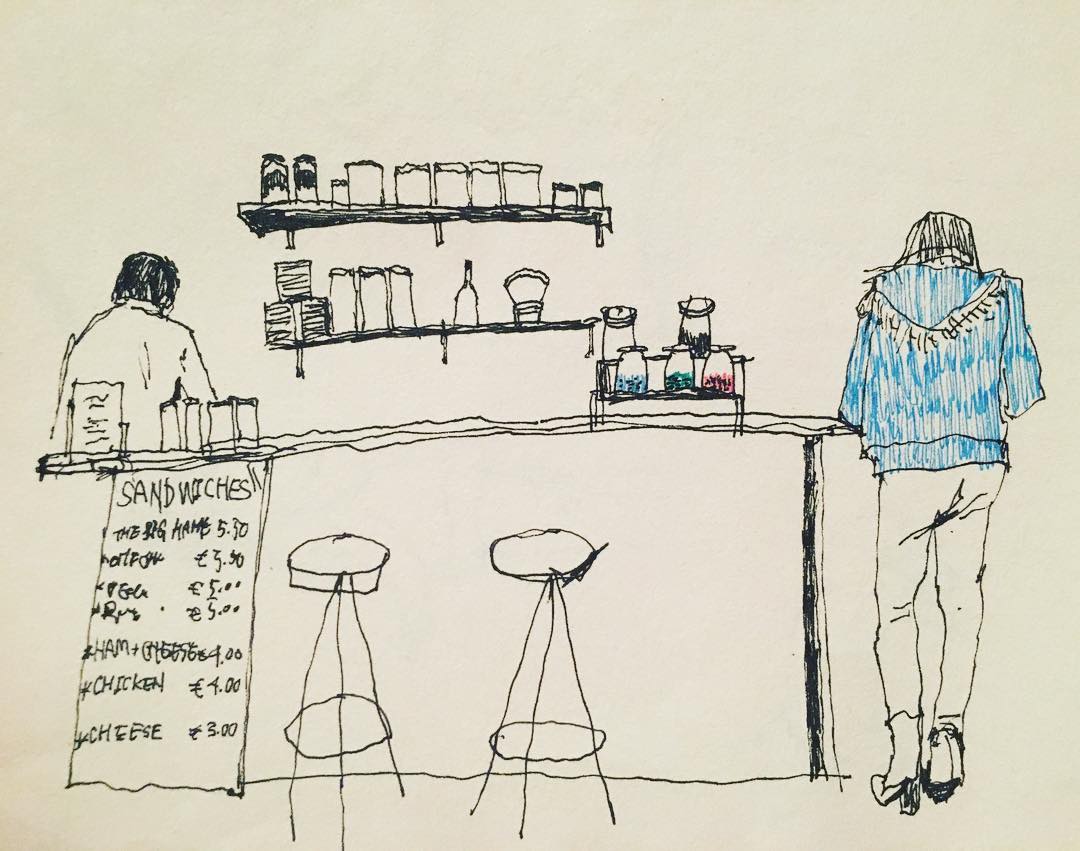 SANDWICHES
THE BIG 5.50
€5.50
€5.00
€5.00
*HAM+CHEESE €4.00
*CHICKEN €4.00
*CHEESE €3.00